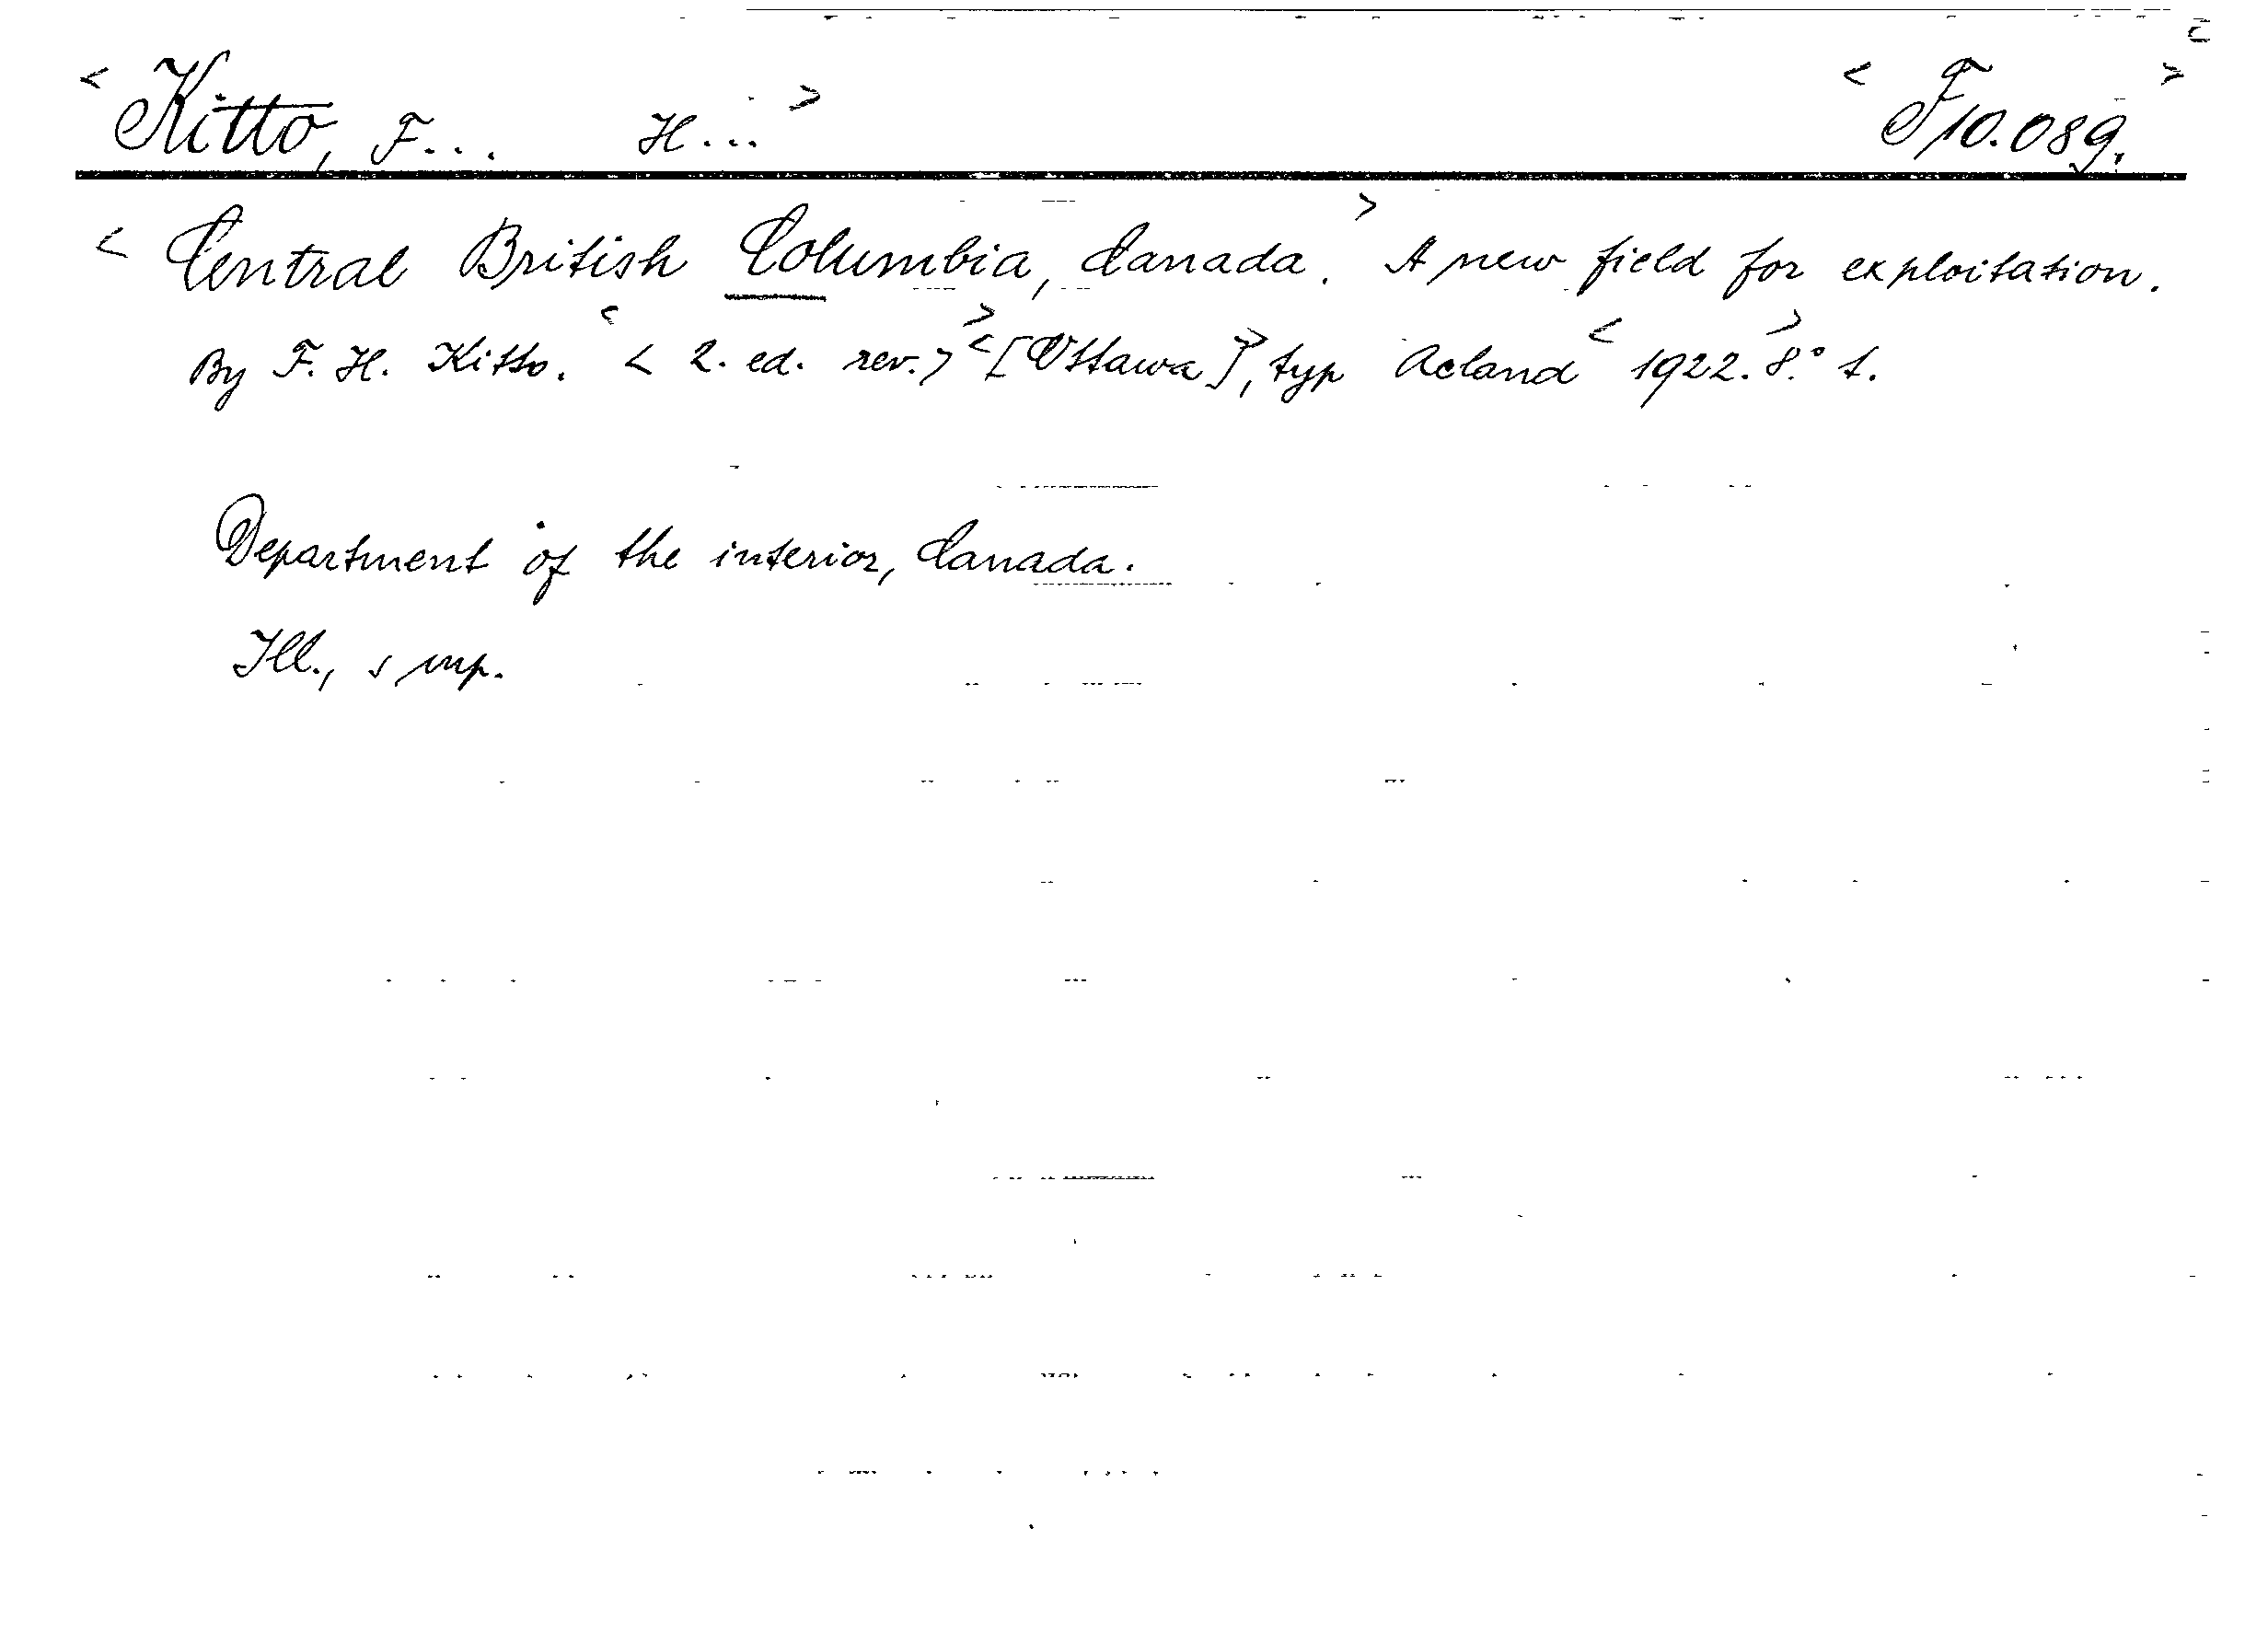 < Kitto, F... H... > < F10.089. >
< Central British Columbia, Canada. > A new field for exploitation.
By F. H. Kitto. < < 2. ed. rev. > > < [Ottawa] >, typ Acland < 1922. > 8.° 1.
Department of the interior, Canada.
Ill., s mp.